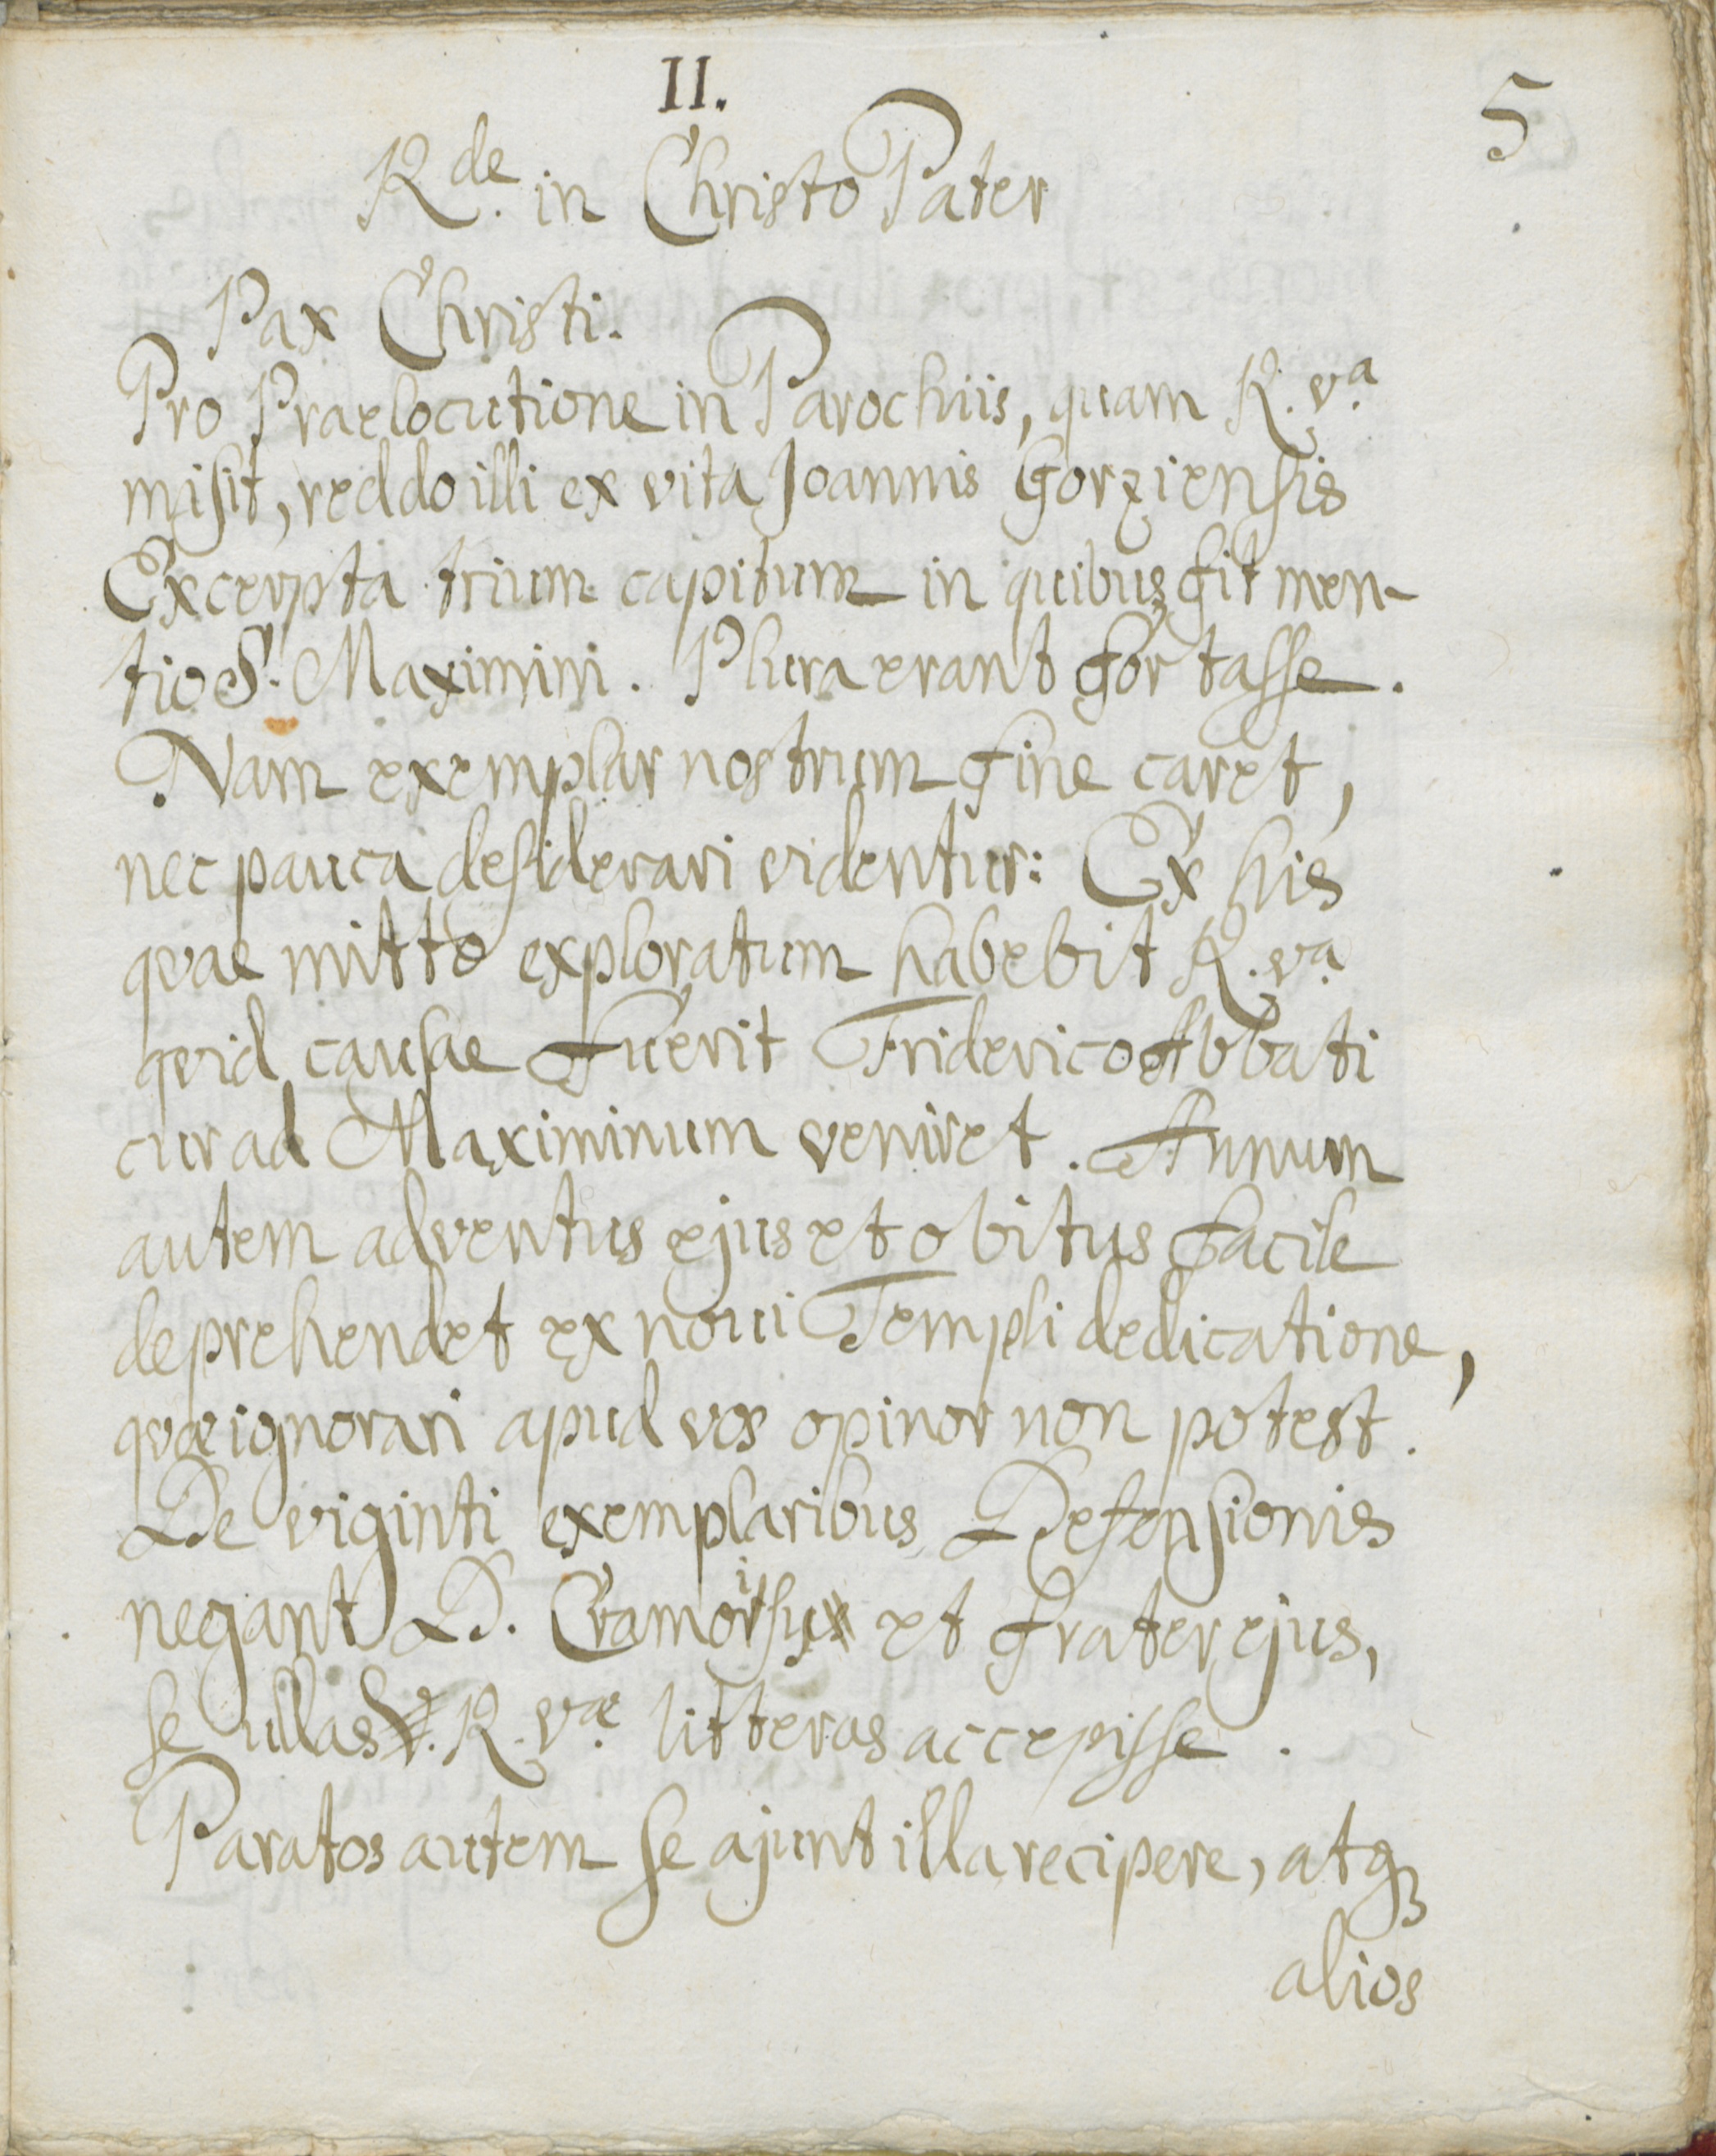 II.
5
R.de in Christo Pater
Pax Christi.
Pro Praelocutione in Parochiis, quam R. va.
misit, reddo illi ex vita Joannis Gorziensis
Excerpta trium capitum in quibus fit men-
tio S. Maximini. Plura erant for tasse.
Nam exemplar nostrum fine caret,
nec pauca desiderari videntur: Ex his
qvae mitto exploratum habebit R. va.
qvid causae fuerit Friderico Abbati
cur ad Maximinum veniret. Annum
autem adventus ejus et obitus facile
deprehendet ex noui Templi dedicatione,
qvæ ignorari apud vos opinor non potest.
De viginti exemplaribus Defensionis
negant D. et frater ejus,
se ullas R. væ. litteras accepisse.
Paratos autem se ajunt illa recipere, atq;
alios